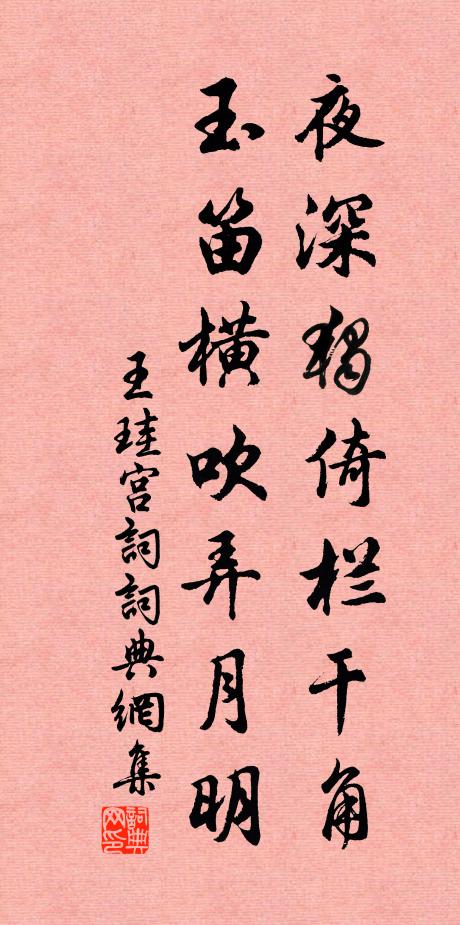 夜深独倚栏干角
玉笛横吹弄月明
王珪宫詞詞典網集
詞典网印